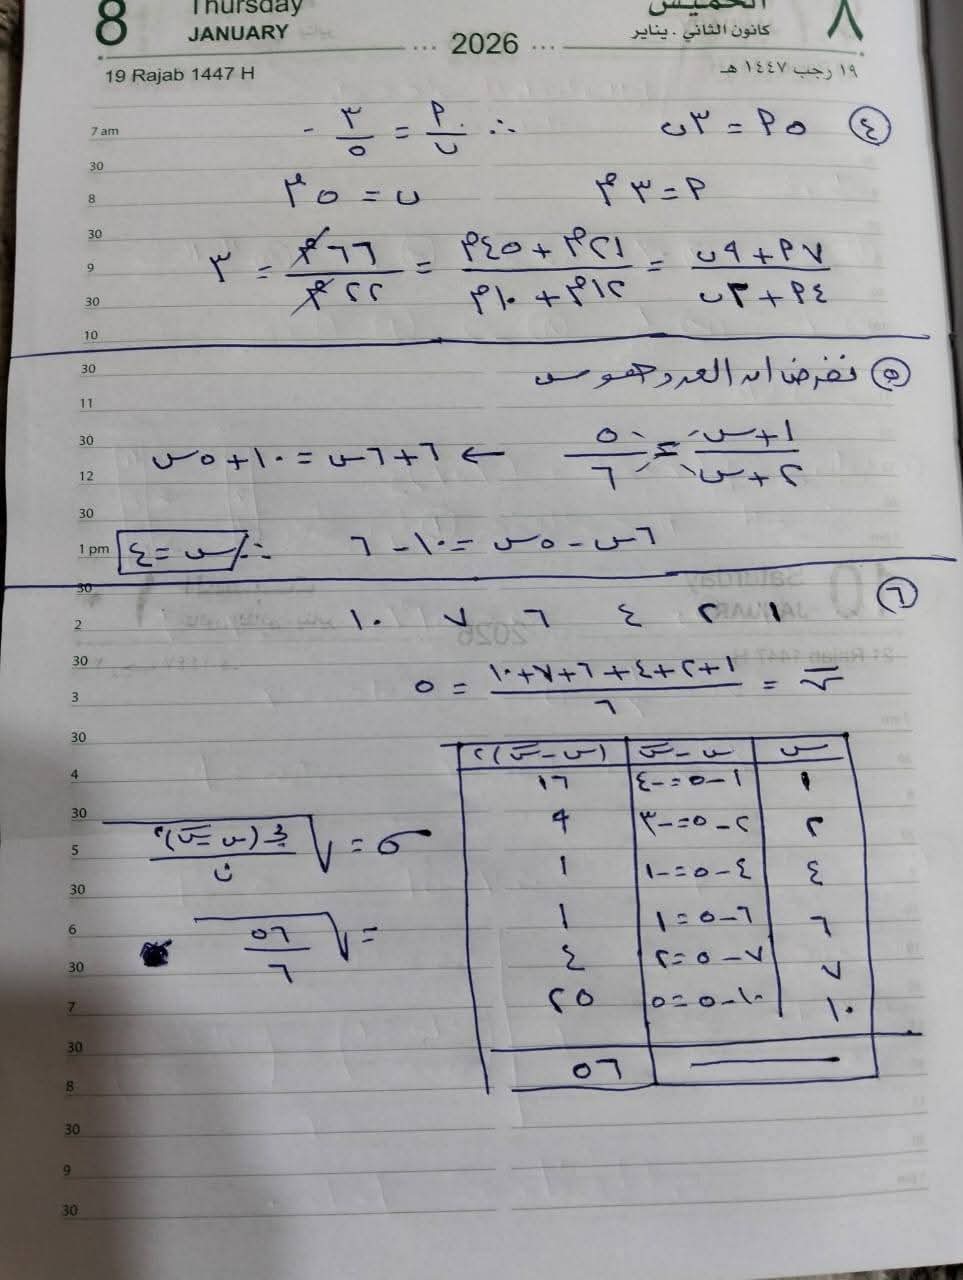 8 Thursday الخميس ٨
JANUARY كانون الثاني . يناير
... 2026 ...
19 Rajab 1447 H ١٩ رجب ١٤٤٧ هـ
7 am
30
8
30
9
30
10
30
11
30
12
30
1 pm
30
2
30
3
30
4
30
5
30
6
30
7
30
8
30
9
30
٤ ٥ م = ٣ ن ∴ م/ن = ٣/٥
م = ٣ م ن = ٥ م
٧م + ٩ن / ٤م + ٢ن = ٢١م + ٤٥م / ١٢م + ١٠م = ٦٦م / ٢٢م = ٣
٥ نفرض ان العدد هو س
١ + س / ٢ + س = ٥ / ٦ ← ٦ + ٦س = ١٠ + ٥س
٦س - ٥س = ١٠ - ٦ ∴ س = ٤
٦ ١ ٢ ٤ ٦ ٧ ١٠
س̄ = ١+٢+٤+٦+٧+١٠ / ٦ = ٥
س س - س̄ (س - س̄)²
١ ١ - ٥ = -٤ ١٦
٢ ٢ - ٥ = -٣ ٩
٤ ٤ - ٥ = -١ ١
٦ ٦ - ٥ = ١ ١
٧ ٧ - ٥ = ٢ ٤
١٠ ١٠ - ٥ = ٥ ٢٥
٥٦
σ = √(مجـ (س - س̄)² / ن)
= √(٥٦ / ٦)